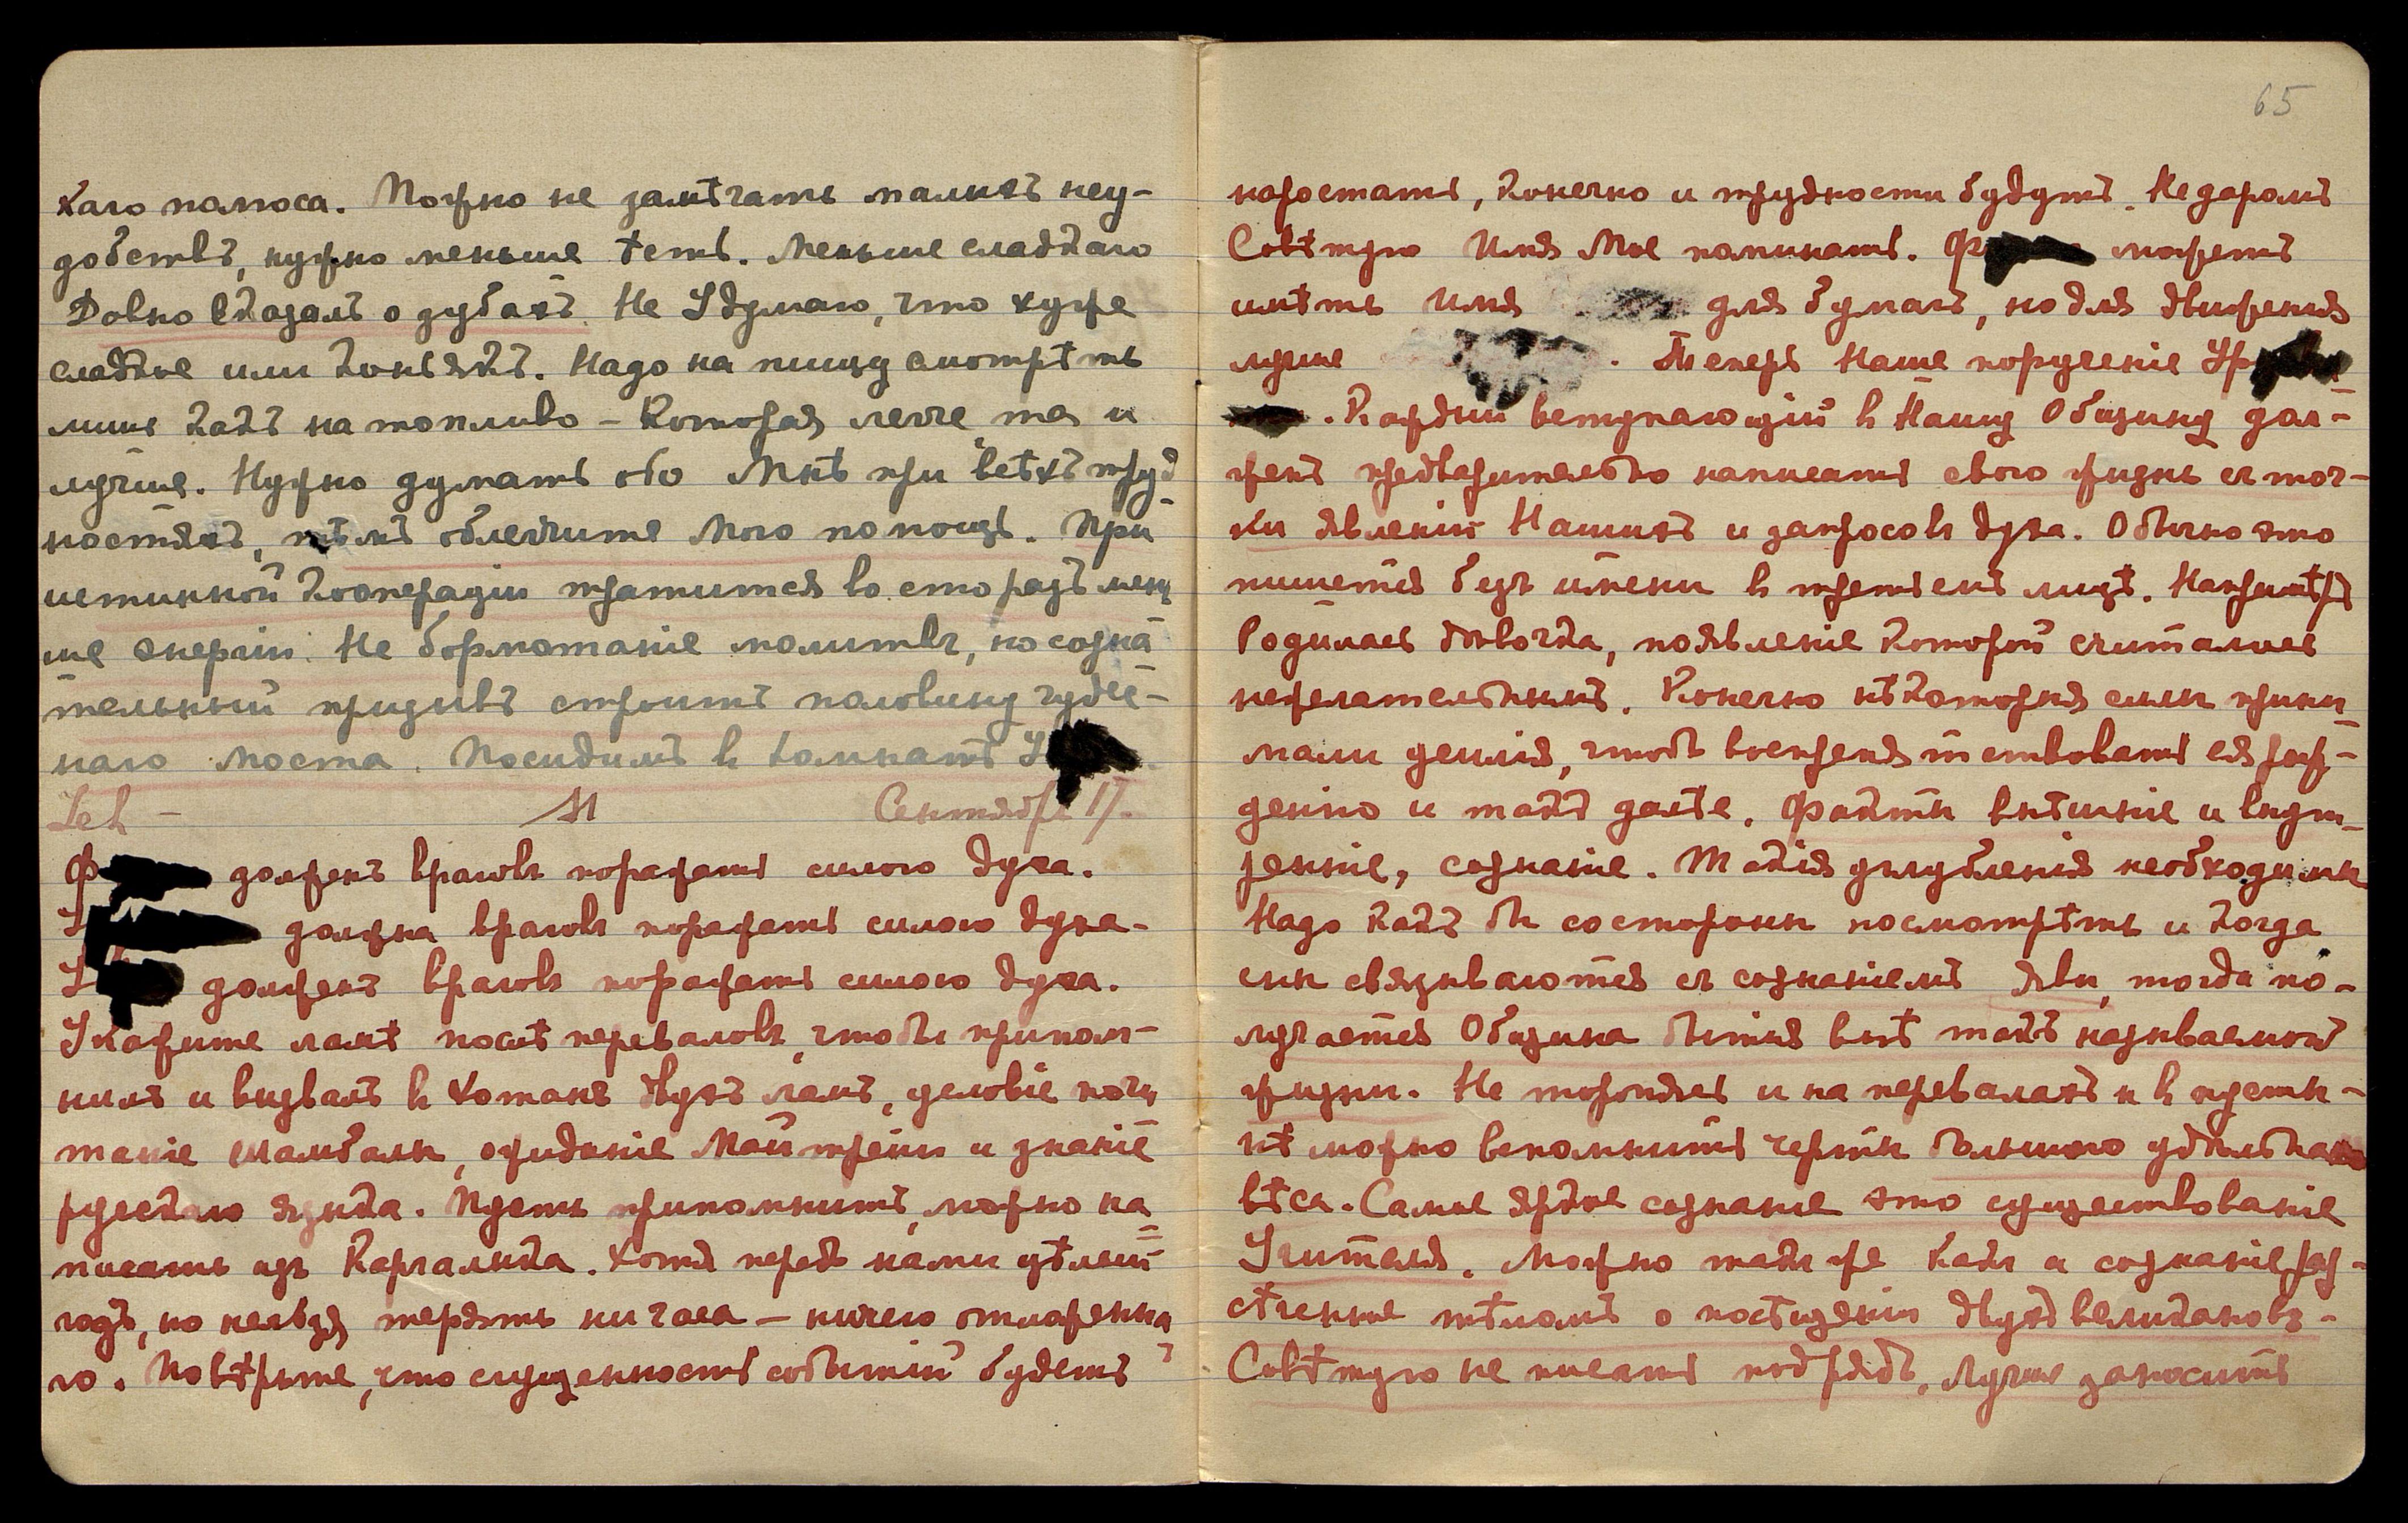 каго полюса. Можно не замѣчать малыхъ неу-
добствъ, нужно меньше ѣсть. Меньше сладкаго
Давно сказалъ о зубахъ. Не Удумаю, что хуже
сладкое или коньякъ. Надо на пищу смотрѣть
лишь какъ на топливо – Которая легче та и
лучше. Нужно думать обо Мнѣ при всѣхъ труд
ностяхъ, тѣмъ облегчите Мою помощь. При
истинной кооперации тратится во сто разъ мень
ше энергии. Не бормотаніе молитвъ, но созна
тельный призывъ строитъ половину чудес-
наго моста. Посидимъ въ комнатѣ
Leh – M Сентябрь 17.
Ф должен враговъ поражать силою духа.
должна враговъ поражать силою духа.
должен враговъ поражать силою духа.
Укажите ламѣ послѣ переваловъ, чтобы припом-
нилъ и вызвалъ в Хотанъ двухъ ламъ, условіе почи
таніе Шамбалы, ожиданіе Майтрейи и знаніе
русскаго языка. Пусть припомнитъ, можно на
писать изъ Каргалыка. Хотя передъ нами цѣлый
годъ, но нельзя терять ни часа – ничего отложенна
го. Повѣрьте, что сгущенность событий будетъ
65
наростать, конечно и трудности будутъ. Недаромъ
Совѣтую Имя Мое поминать. Ф можетъ
имѣть имя для бумагъ, но для движения
лучше . Теперь Наше порученіе Ур
. Каждый вступающій в Нашу Общину дол-
женъ предварительно написать свою жизнь съ точ-
ки явленій Нашихъ и запросовъ духа. Обычно это
пишется безъ имени въ третьемъ лицѣ. Напримѣръ
Родилась дѣвочка, появленіе которой считалось
нежелательнымъ. Конечно нѣкоторыя силы прини
мали усилія, чтобъ воспрепятствовать ея рож-
денію и такъ далѣе. Факты внѣшніе и внут-
ренніе, сознаніе. Такія углубленія необходимы
Надо какъ бы со стороны посмотрѣть и когда
сны связываются съ сознаніемъ яви, тогда по-
лучается Община бытія внѣ такъ называемой
жизни. Не торопясь и на перевалахъ и въ пусты-
нѣ можно вспомнить черты большого удѣльнаго
вѣса. Самое яркое сознаніе это существованіе
Учителя. Можно также какъ и сознаніе
тѣломъ о посѣщеніи двухъ великановъ.
Совѣтую не писать подрядъ, лучше заносить